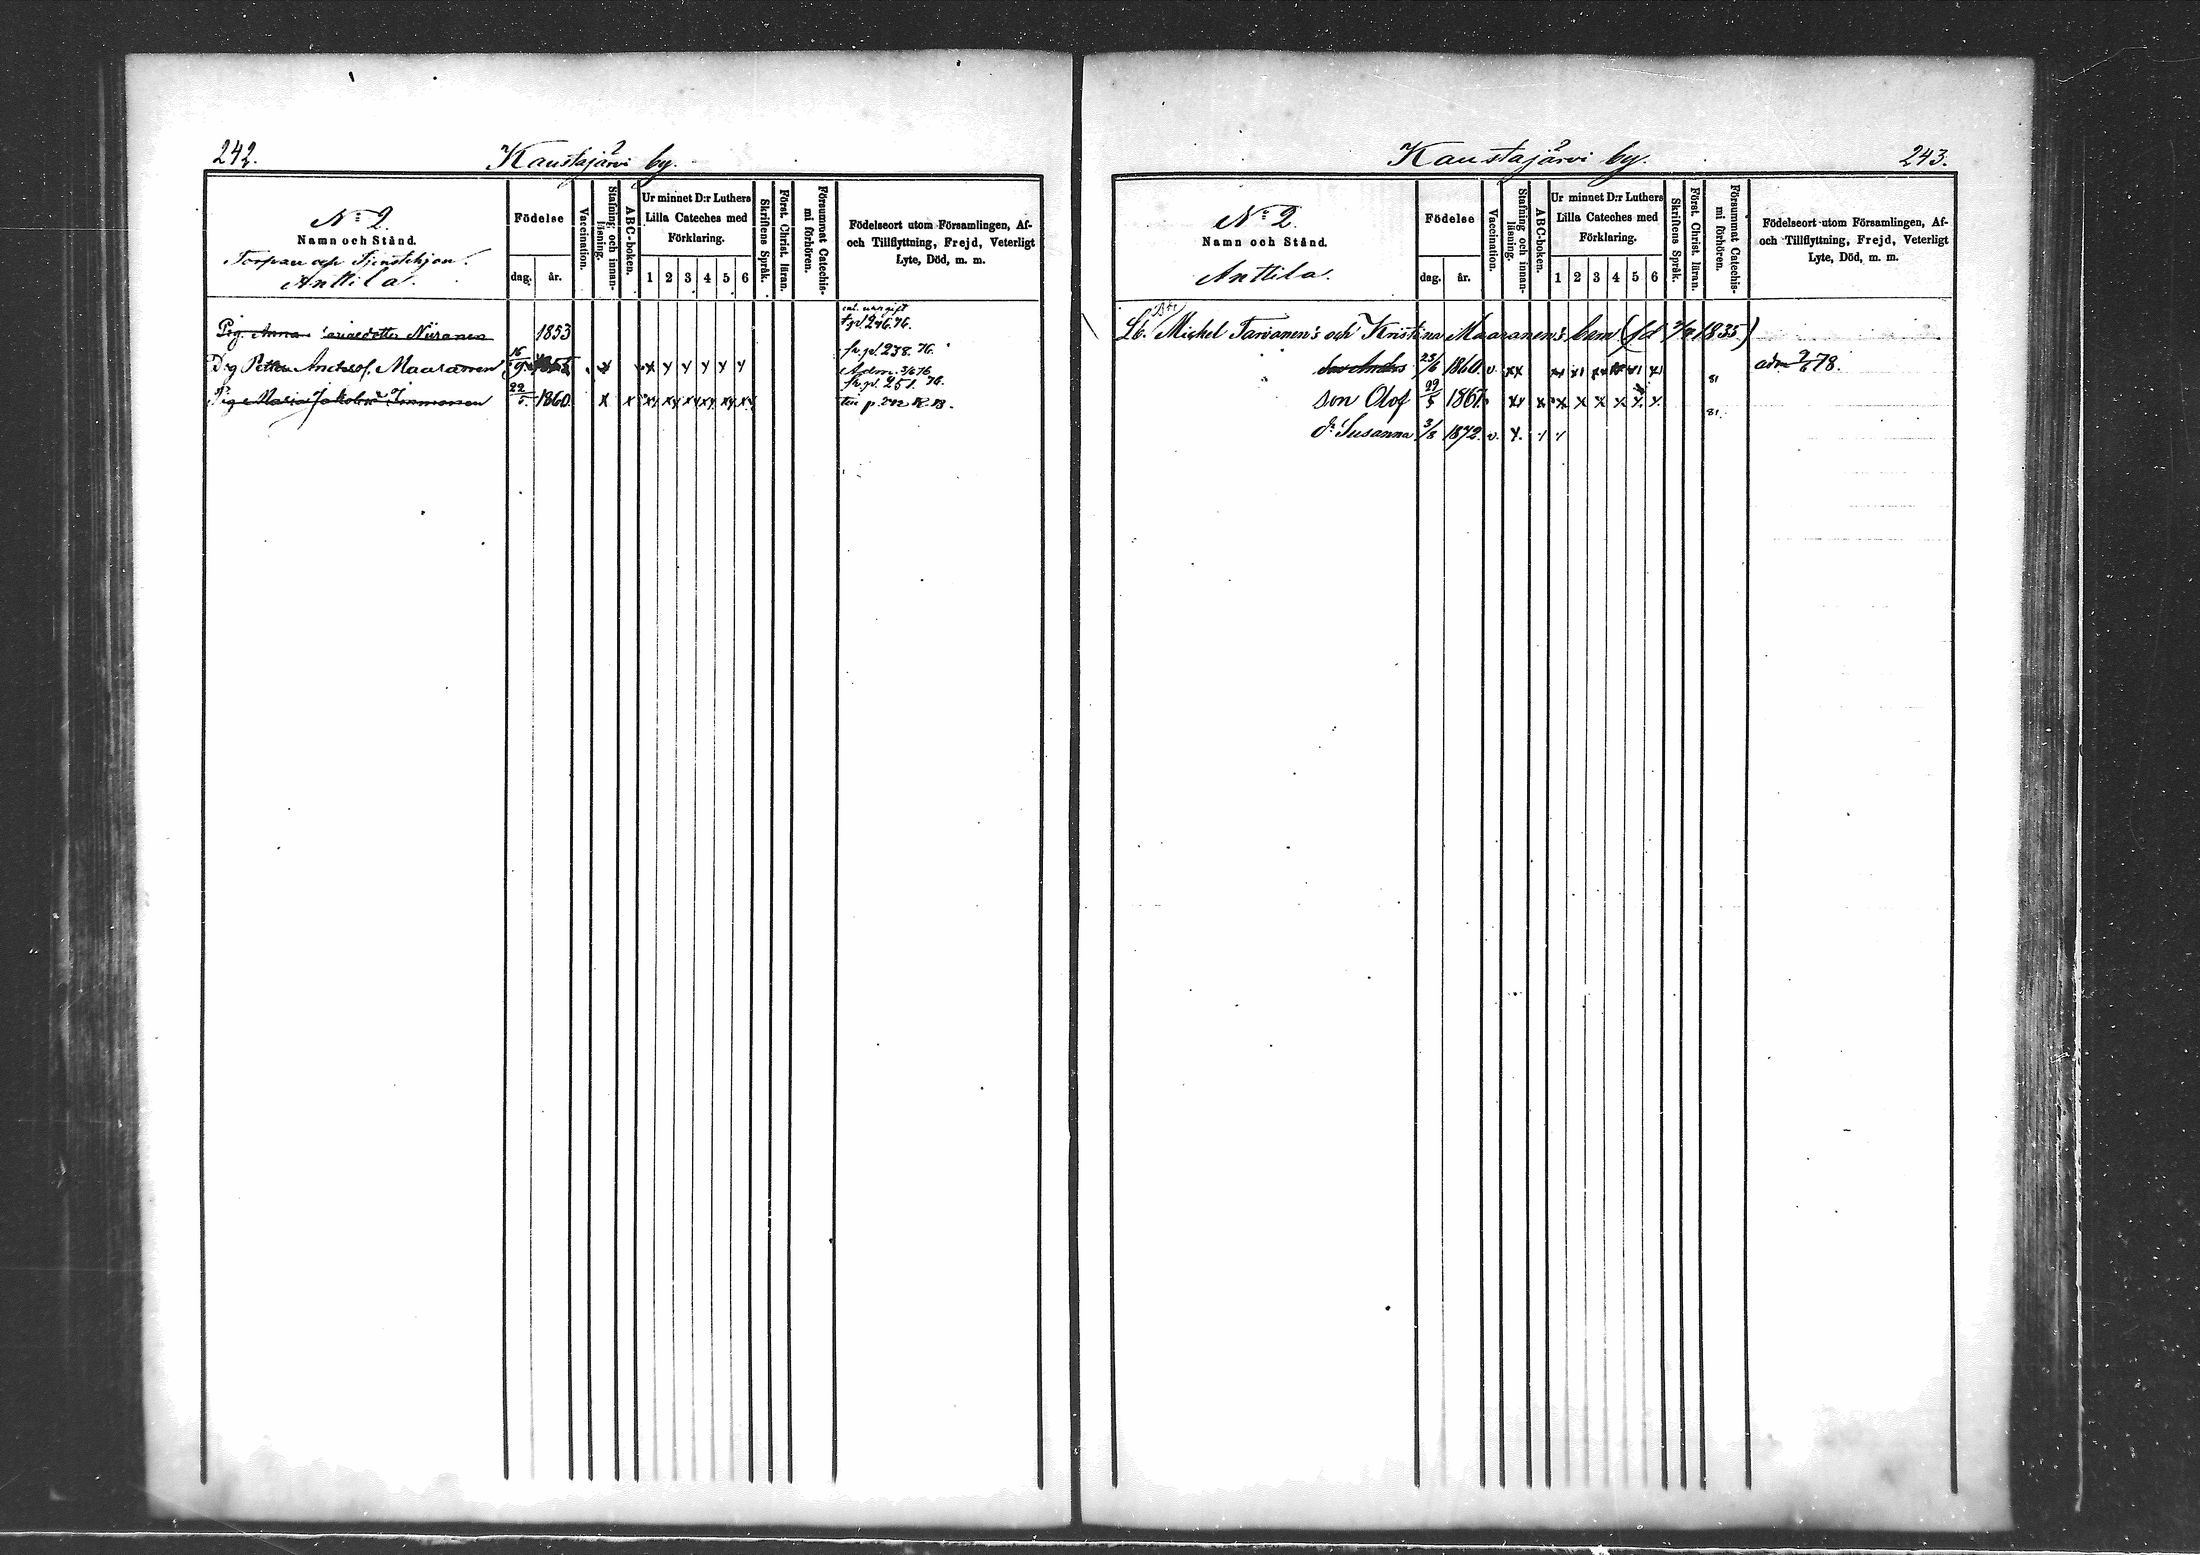 242.
Kaustajärvi by.
N:o 2.
Namn och Stånd.
Torpare och Tjenstehjon.
Anttila.
Födelse
dag. år.
Vaccination.
Stafning och innan-
läsning.
ABC-boken.
Ur minnet D:r Luthers
Lilla Cateches med
Förklaring.
1 2 3 4 5 6
Skriftens Språk.
Först. Christ. läran.
Försummat Catechis-
mi förhören.
Födelseort utom Församlingen, Af-
och Tillflyttning, Frejd, Veterligt
Lyte, Död, m. m.
Pig. Anna Niiranen 1853 246.76.
fr. pl. 238. 76.
Drg Petter Andersof. Maaranen 16/9 x x y y y y y Adm. 3/6 76
fr. pl. 251. 76.
Pig Maria Jakobsd Immonen 22/5 1860 x x xy xy xy xy xy xy
243.
Kaustajärvi by.
N:o 2.
Namn och Stånd.
Anttila.
Födelse
dag. år.
Vaccination.
Stafning och innan-
läsning.
ABC-boken.
Ur minnet D:r Luthers
Lilla Cateches med
Förklaring.
1 2 3 4 5 6
Skriftens Språk.
Först. Christ. läran.
Försummat Catechis-
mi förhören.
Födelseort utom Församlingen, Af-
och Tillflyttning, Frejd, Veterligt
Lyte, Död, m. m.
Lb. Michel Tarvanen's och Kristina Maaranen's barn (fd 1835.)
son Anders 23/6 1860 v. xx adm 2/6 78.
81
son Olof 29/5 1867 xy x x x x x
81
dr Susanna 3/8 1872 v. y.